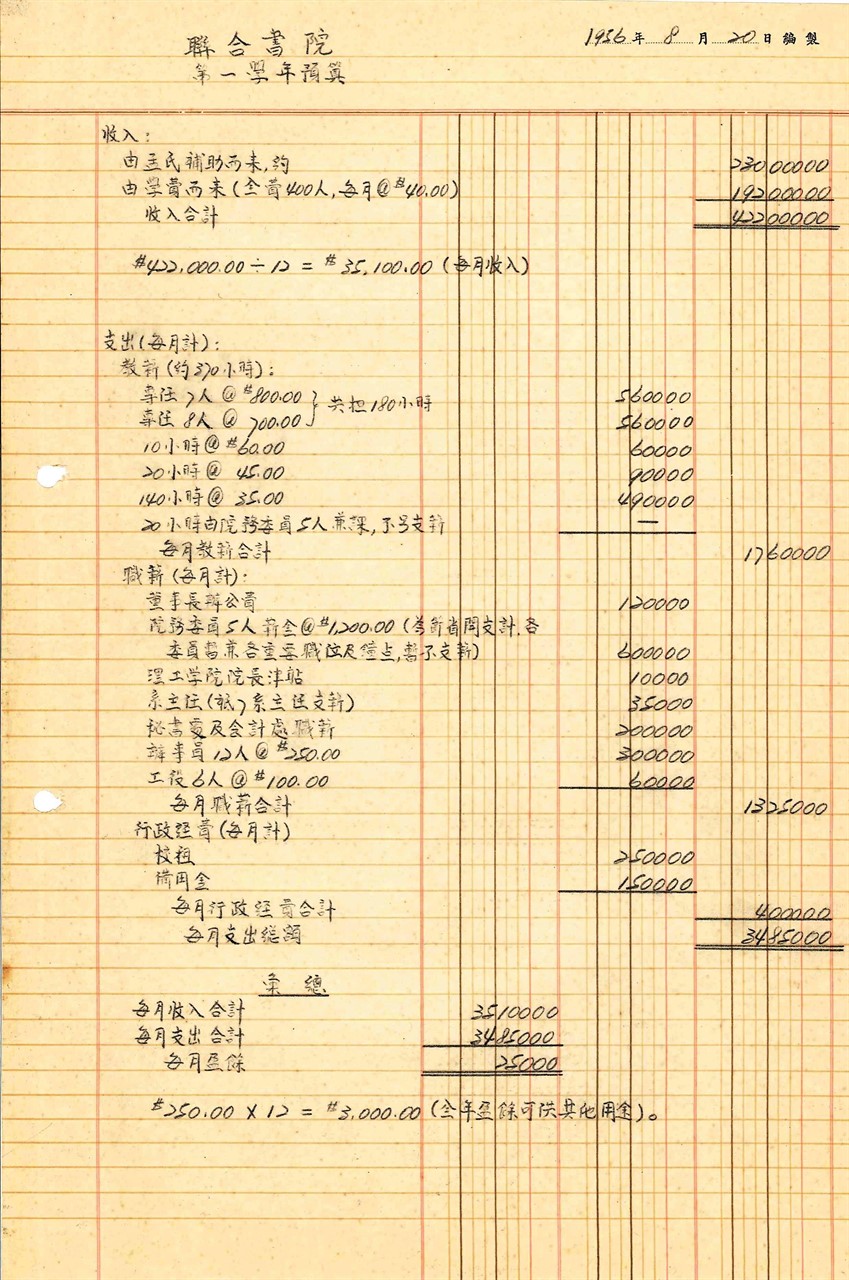 1956年 8 月 20 日編製
聯合書院
第一學年預算
收入:
由孟民補助而来,約 23000000
由學費而来(全費400人,每月@$40.00) 19200000
收入合計 42200000
$422,000.00 ÷ 12 = $35,100.00 (每月收入)
支出(每月計):
教薪(約370小時):
專任7人@$800.00 560000
共担180小時
專任8人@ 700.00 560000
10小時@$60.00 60000
20小時@ 45.00 90000
140小時@ 35.00 490000
20小時由院務委員5人兼課,不另支薪 —
每月教薪合計 1760000
職薪(每月計):
董事長辦公費 120000
院務委員5人薪金@$1,200.00(為節省開支計,各
委員暫兼各重要職位及鐘点,暫不支薪) 600000
理工学院院長津貼 10000
系主任(祇7系主任支薪) 35000
秘書處及会計處職薪 200000
辦事員12人@$250.00 300000
工役6人@$100.00 60000
每月職薪合計 1325000
行政經費(每月計)
校租 250000
備用金 150000
每月行政經費合計 400000
每月支出總額 3485000
彙 總
每月收入合計 3510000
每月支出合計 3485000
每月盈餘 25000
$250.00 × 12 = $3,000.00 (全年盈餘可供其他用途)。